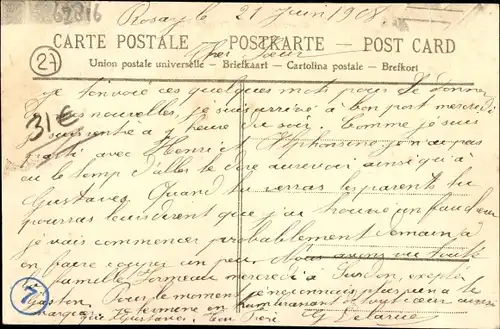 62816
Rosay le 21 Juin 1908
CARTE POSTALE – POSTKARTE – POST CARD
Cher Sœur
Union postale universelle – Briefkaart – Cartolina postale – Brefkort
27
31€
je t'envoie ces quelques mots pour te donner
nouvelles, je suis arrivé à bon port mercredi
je suis rentré à 9 heure du soir. Comme je suis
parti avec Henri et Alphonsine je n'ai pas
eu le temp d'aller te dire aurevoir ainsi qu'à
Gustave. Quand tu verras les parents tu
pourras leurs dirent que j'ai trouvé un
je vais commencer probablement demain à
en faire couper un peu. Nous avons vu toute
la famille mercredi à excepté
Gaston. Pour le moment je ne connais plus rien à te
marquer je termine en t'embrassant de tout cœur ainsi
que Gustave. Ton frère G Delarue
7